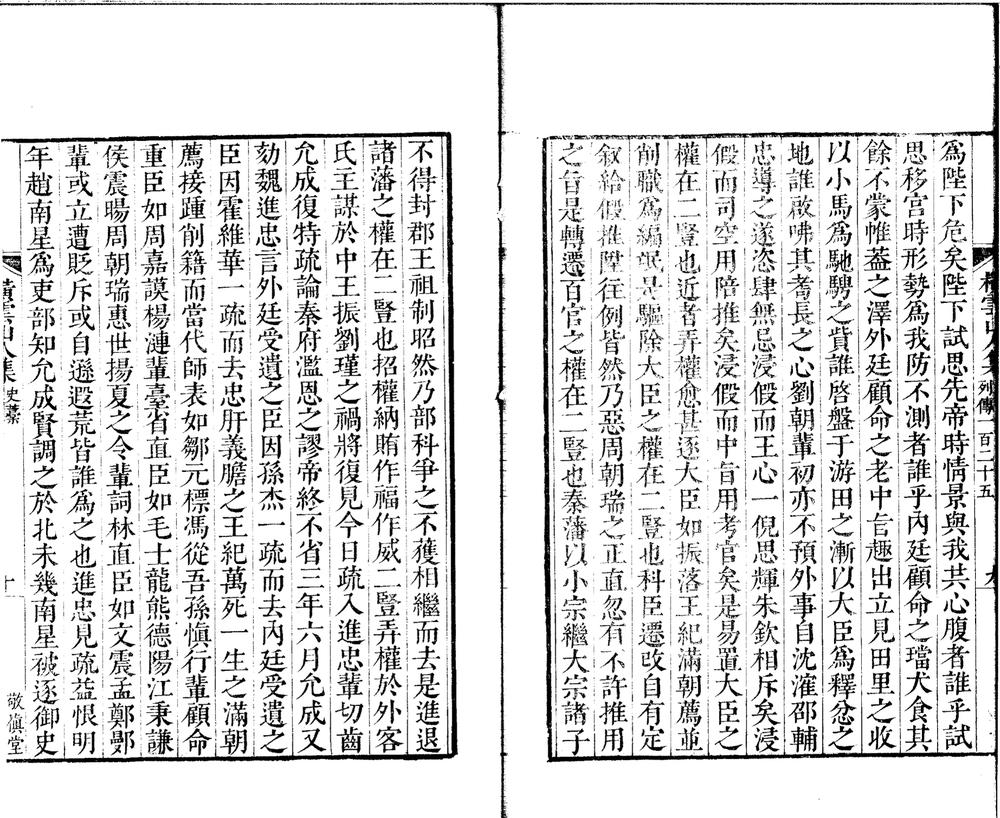 爲陛下危矣陛下試思先帝時情景與我共心腹者誰乎試
思移宮時形勢爲我防不測者誰乎內廷顧命之璫犬食其
餘不蒙帷蓋之澤外廷顧命之老中旨趣出立見田里之收
以小馬爲馳騁之貲誰啓盤于游田之漸以大臣爲釋忿之
地誰啟咈其耇長之心劉朝輩初亦不預外事自沈㴶邵輔
忠導之遂恣肆無忌浸假而王心一倪思輝朱欽相斥矣浸
假而司空用陪推矣浸假而中旨用考官矣是易置大臣之
權在二豎也近者弄權愈甚逐大臣如振落王紀滿朝薦並
削職爲編氓是驅除大臣之權在二豎也科臣遷改自有定
敘給假推陞往例皆然乃惡周朝瑞之正直忽有不許推用
之旨是轉遷百官之權在二豎也秦藩以小宗繼大宗諸子
橫雲山人集 列傳一百二十五 九
不得封郡王祖制昭然乃部科爭之不獲相繼而去是進退
諸藩之權在二豎也招權納賄作福作威二豎弄權於外客
氏主謀於中王振劉瑾之禍將復見今日疏入進忠輩切齒
允成復特疏論秦府濫恩之謬帝終不省三年六月允成又
劾魏進忠言外廷受遺之臣因孫杰一疏而去內廷受遺之
臣因霍維華一疏而去忠肝義膽之王紀萬死一生之滿朝
薦接踵削籍而當代師表如鄒元標馮從吾孫愼行輩顧命
重臣如周嘉謨楊漣輩臺省直臣如毛士龍熊德陽江秉謙
侯震暘周朝瑞惠世揚夏之令輩詞林直臣如文震孟鄭鄤
輩或立遭貶斥或自遜遐荒皆誰爲之也進忠見疏益恨明
年趙南星爲吏部知允成賢調之於北未幾南星被逐御史
橫雲山人集 史藁 十 敬愼堂